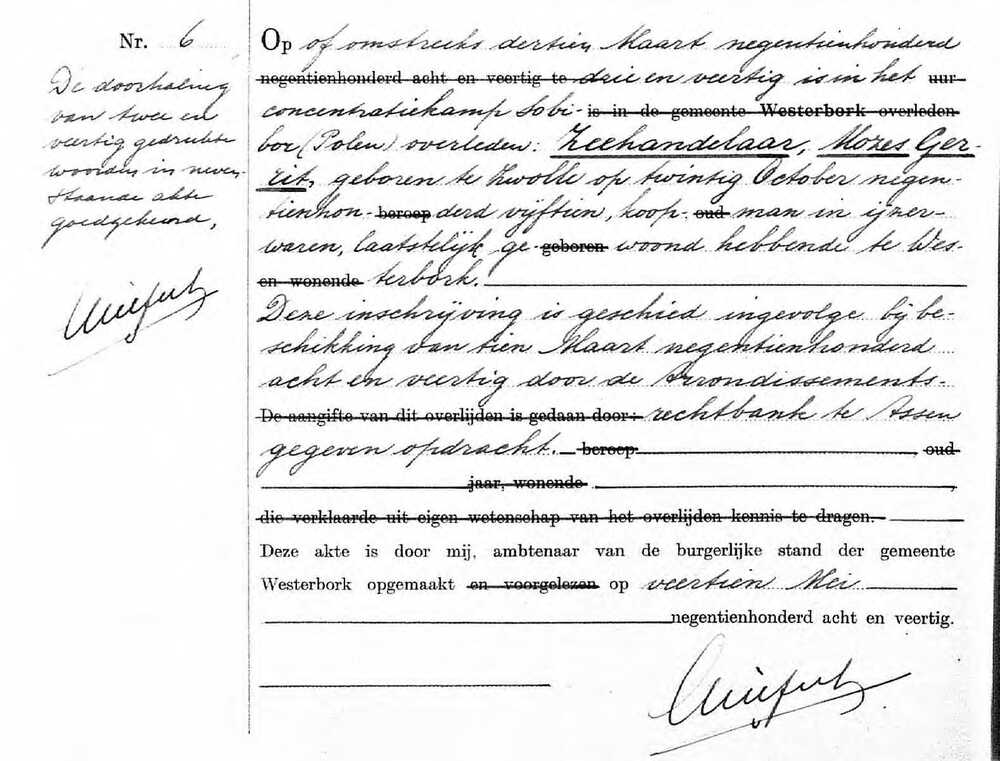 Nr. 6
De doorhaling
van twee en
veertig gedrukte
woorden in neven-
staande akte
goedgekeurd,
Op of omstreeks dertien Maart negentienhonderd
negentienhonderd acht en veertig te drie en veertig is in het uur
concentratiekamp Sobi- is in de gemeente Westerbork overleden
bor (Polen) overleden: Zeehandelaar, Mozes Ger-
rit, geboren te Zwolle op twintig October negen-
tienhon- beroep derd vijftien, koop- oud man in ijzer-
waren, laatstelijk ge- geboren woond hebbende te Wes-
en wonende terbork.
Deze inschrijving is geschied ingevolge bij be-
schikking van tien Maart negentienhonderd
acht en veertig door de Arrondissements-
De aangifte van dit overlijden is gedaan door: rechtbank te Assen
gegeven opdracht. beroep , oud
jaar, wonende ,
die verklaarde uit eigen wetenschap van het overlijden kennis te dragen.
Deze akte is door mij, ambtenaar van de burgerlijke stand der gemeente
Westerbork opgemaakt en voorgelezen op veertien Mei
negentienhonderd acht en veertig.